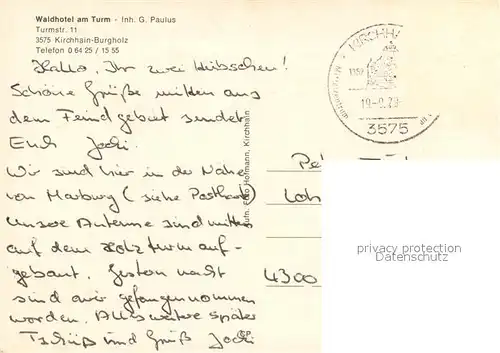 Waldhotel am Turm - Inh. G. Paulus
Turmstr. 11
3575 Kirchhain-Burgholz
Telefon 0 64 25 / 15 55
Hallo, Ihr zwei Hübschen!
Schöne Grüße mitten aus
dem Feindgebiet sendet
Euch Jochi.
Wir sind hier in der Nähe
von Marburg (siehe Postkarte)
Unsere Antenne sind mitten
auf dem Holzturm auf-
gebaut. Gestern nacht
sind wir gefangennommen
worden. Alles weitere später
Tschüß und Gruß Jochi
Aufn. Foto Hofmann, Kirchhain
KIRCHHA
3575
Pe
Loh
4300
privacy protection
Datenschutz